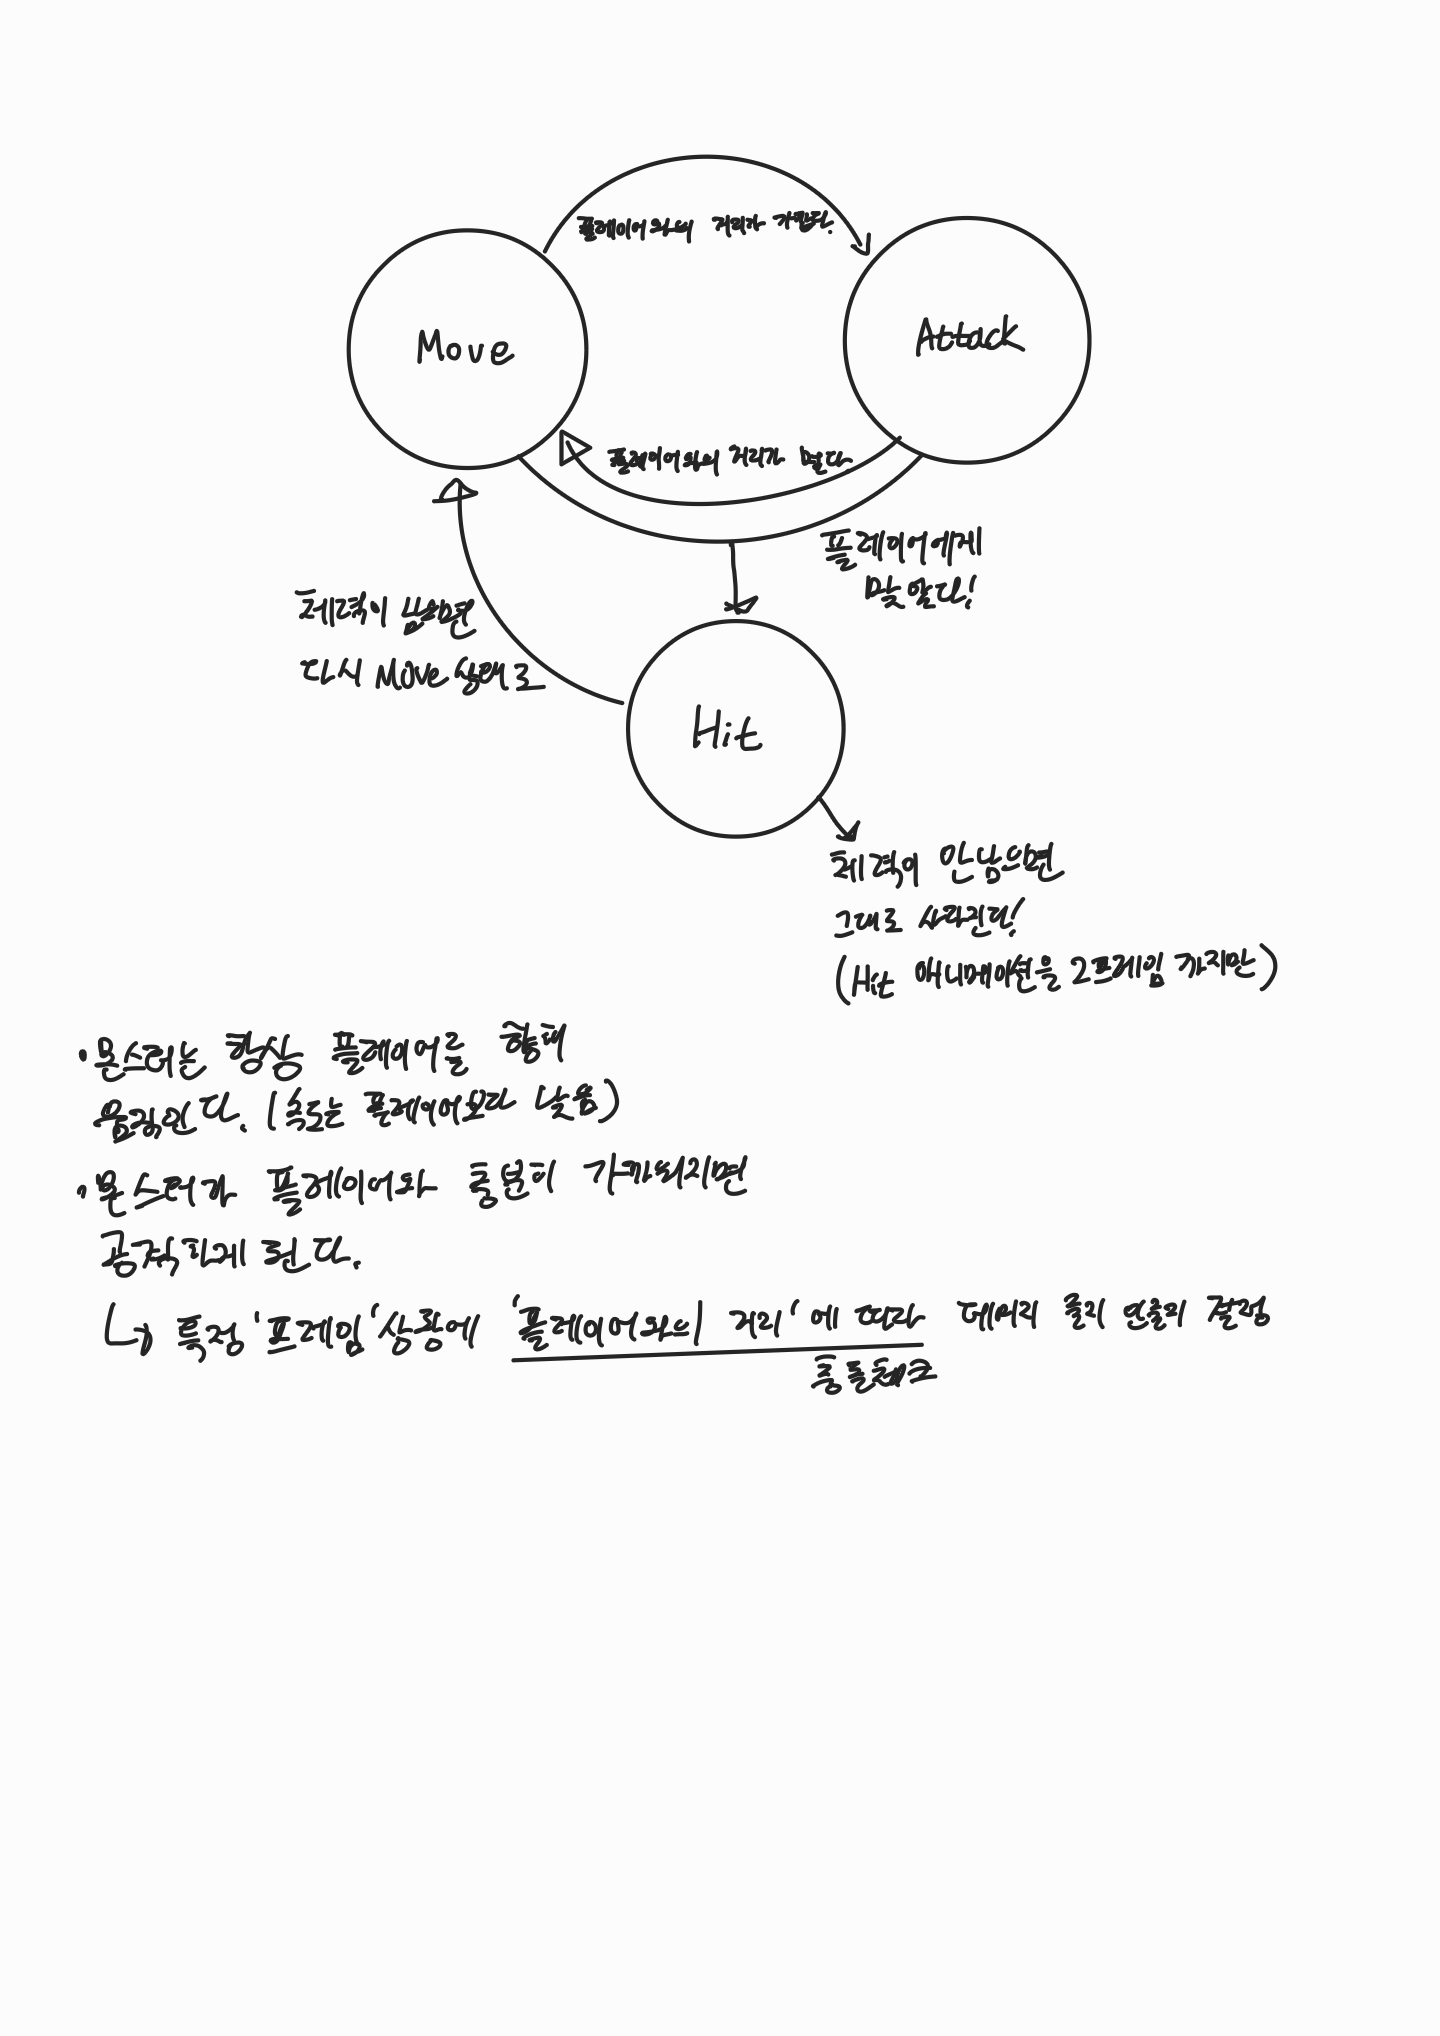 플레이어와의 거리가 가깝다.
Move
Attack
플레이어와의 거리가 멀다
플레이어에게
맞았다!
체력이 남으면
다시 Move 상태로
Hit
체력이 안남으면
그대로 사라진다!
(Hit 애니메이션을 2프레임 까지만)
· 몬스터는 항상 플레이어를 향해
움직인다. (속도는 플레이어보다 낮음)
· 몬스터가 플레이어와 충분히 가까워지면
공격하게 된다.
↳ 특정 '프레임' 상황에 '플레이어와의 거리'에 따라 데미지 줄지 안줄지 결정
충돌체크